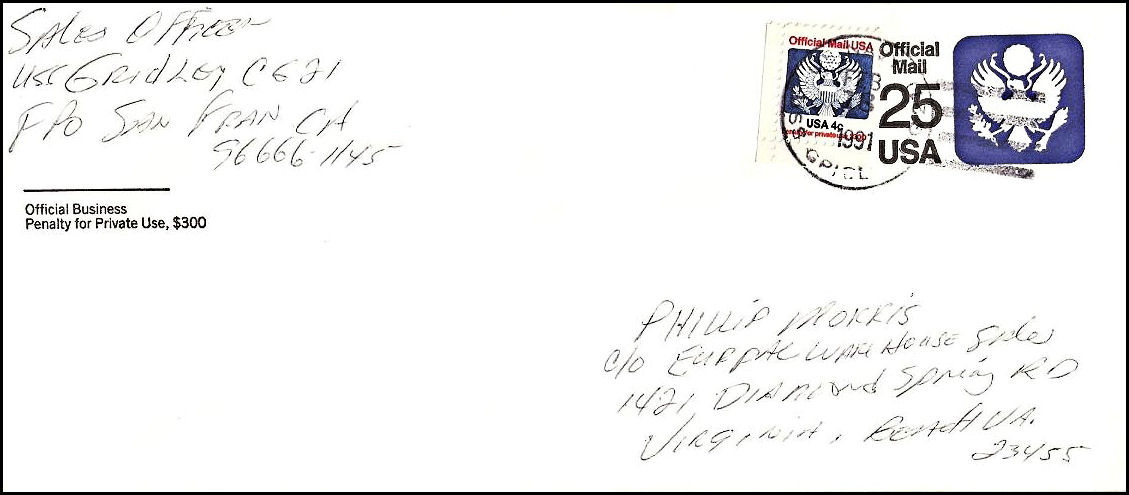 Sales Officer
USS Gridley CG21
FPO San Fran CA
96666-1145
Official Business
Penalty for Private Use, $300
Official Mail USA
USA 4c
FEB
1991
Official
Mail
25
USA
Phillip Morris
c/o Eurpac Warehouse Sales
1421 Diamond Spring RD
Virginia, Beach VA.
23455